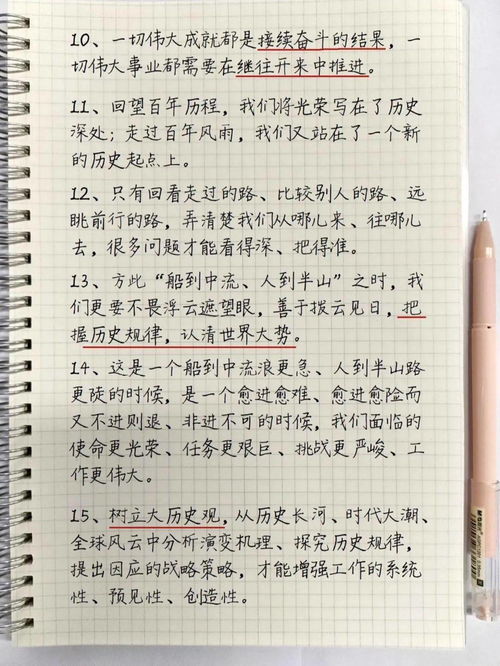 10、一切伟大成就都是接续奋斗的结果，一
切伟大事业都需要在继往开来中推进。
11、回望百年历程，我们将光荣写在了历史
深处；走过百年风雨，我们又站在了一个新
的历史起点上。
12、只有回看走过的路、比较别人的路、远
眺前行的路，弄清楚我们从哪儿来、往哪儿
去，很多问题才能看得深、把得准。
13、方此“船到中流、人到半山”之时，我
们更要不畏浮云遮望眼，善于拨云见日，把
握历史规律，认清世界大势。
14、这是一个船到中流浪更急、人到半山路
更陡的时候，是一个愈进愈难、愈进愈险而
又不进则退、非进不可的时候，我们面临的
使命更光荣、任务更艰巨、挑战更严峻、工
作更伟大。
15、树立大历史观，从历史长河、时代大潮、
全球风云中分析演变机理、探究历史规律，
提出因应的战略策略，才能增强工作的系统
性、预见性、创造性。